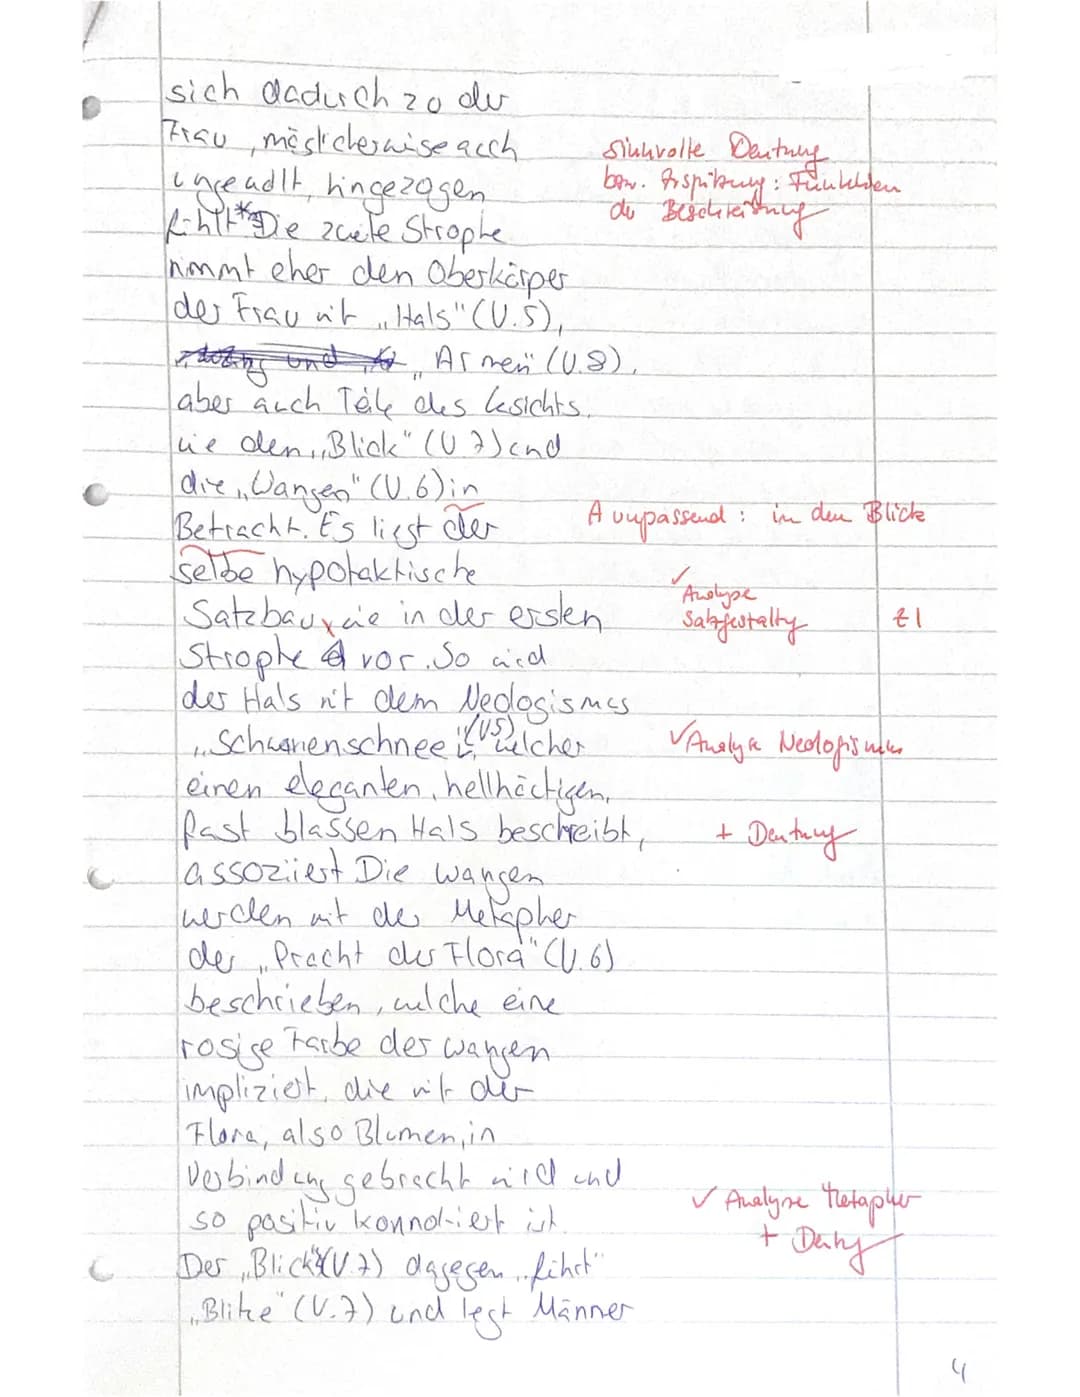 sich dadurch zu der
Frau, möglicherweise auch
ungewollt, hingezogen
fühlt.* Die zweite Strophe
sinnvolle Deutung
bzw. Zuspitzung: Funktion
der Beschreibung
nimmt eher den Oberkörper
der Frau mit „Hals" (V.5),
„Armen" (V.8),
aber auch Teile des Gesichts,
wie den „Blick" (V.7) und
die „Wangen" (V.6) in
Betracht. Es liegt der
A unpassend: in den Blick
selbe hypotaktische
Satzbau wie in der ersten
✓ Analyse
Satzgestaltg
Z1
Strophe vor. So wird
der Hals mit dem Neologismus
„Schwanenschnee" (V5), welcher
✓ Analyse Neologismus
einen eleganten, hellhäutigen,
fast blassen Hals beschreibt,
+ Deutung
assoziiert. Die Wangen
werden mit der Metapher
der „Pracht der Flora" (V.6)
beschrieben, welche eine
rosige Farbe der Wangen
impliziert, die mit der
Flora, also Blumen, in
Verbindung gebracht wird und
so positiv konnotiert ist.
✓ Analyse Metapher
+ Deutg
Der „Blick" (V.7) dagegen „führt"
„Blitze" (V.7) und legt Männer
4